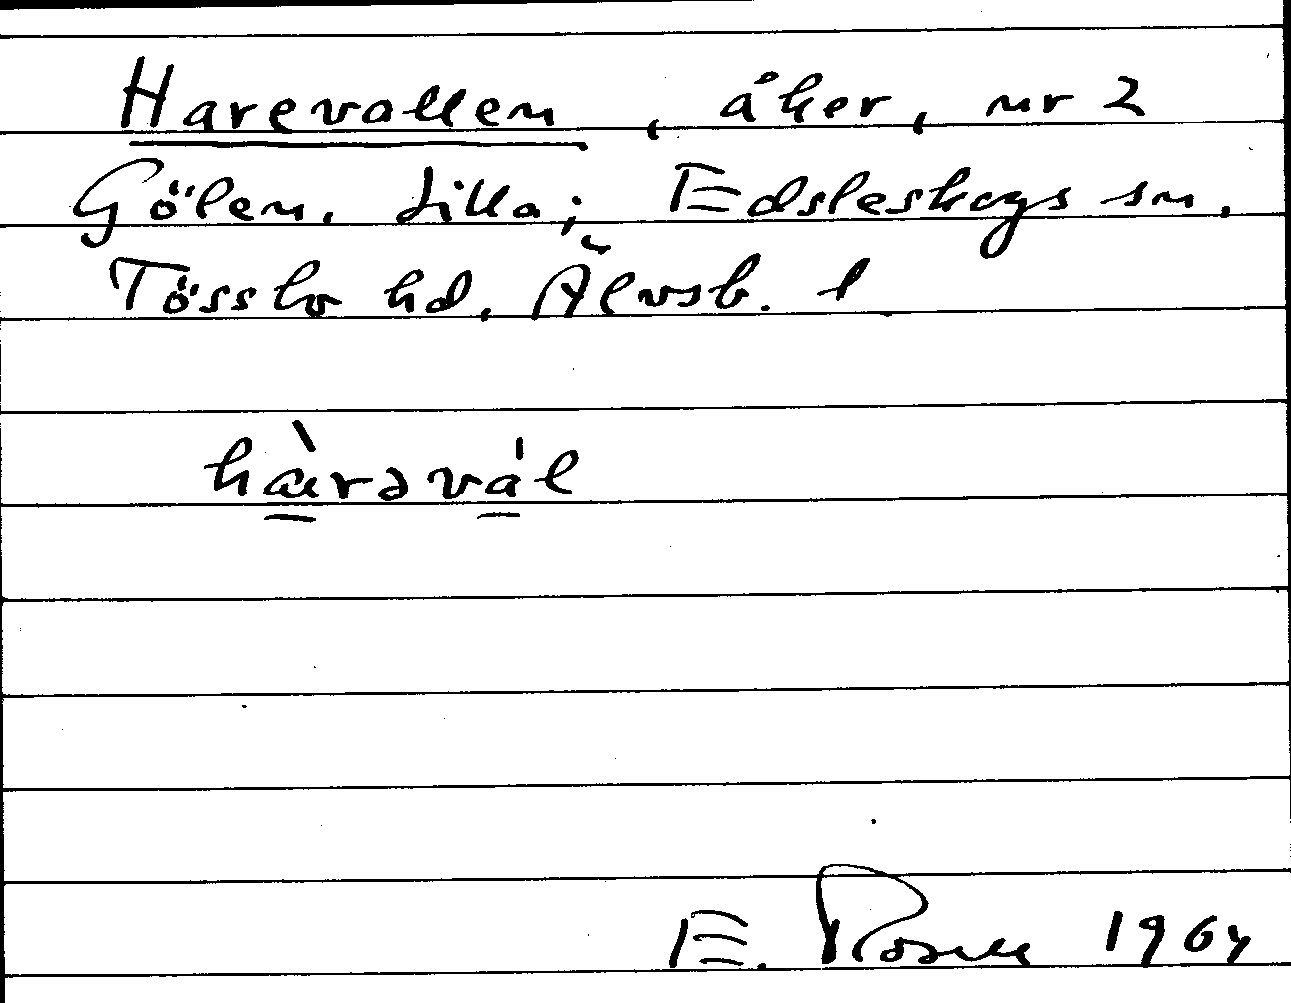 Harevallen, åker, nr 2
Gölen. Lilla; Edsleskogs sn.
Tössbo hd, Älvsb. l
hàrəvál
E. Rosell 1964